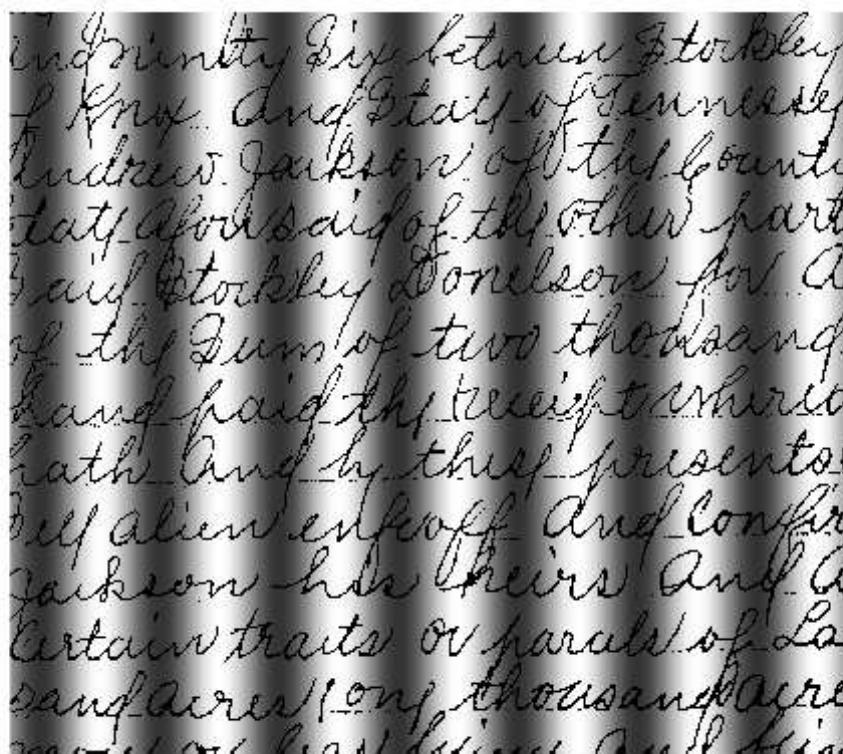 indninty Six between Stockley
of Knox And State of Tennessey
Andrew Jackson of the County
State aforesaid of the other part
Said Stockley Donelson for A
of the Sum of two thousand
hand paid the receipt whereo
hath And by these presents
Sell alien enfeoff And Confir
Jackson his heirs And A
Certain traits or parcels of La
sand acres one thousand acre